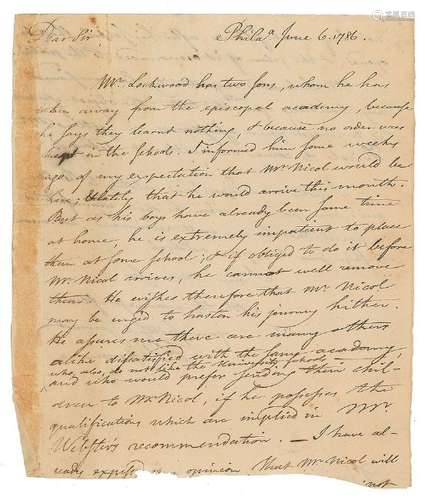 Dear Sir Phila June 6. 1786.
Mr. Lockwood has two sons, whom he has
taken away from the episcopal academy, because
he says they learnt nothing, & because no order was
kept in the Schools. I informed him some weeks
ago of my expectation that Mr Nicol would be
here; & lately that he would arrive this month.
But as his boys have already been some time
at home, he is extremely impatient to place
them at some school; & if obliged to do it before
Mr. Nicol arrives, he cannot well remove
them. He wishes therefore that Mr. Nicol
may be urged to hasten his journey hither.
He assures me there are many others
alike dissatisfied with the same academy,
who, also, do not like the University Schools,
and who would prefer sending their chil-
dren to Mr. Nicol, if he possesses the
qualifications which are implied in Mr.
Webster's recommendation. — I have al-
ready expressed my opinion that Mr Nicol will
not